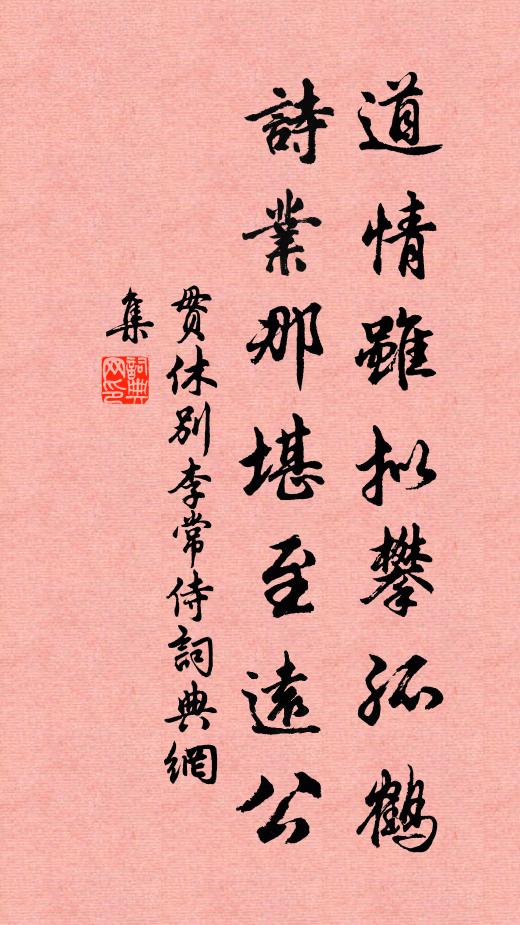 道情雖拟攀孤鶴
詩業那堪至遠公
貫休别李常侍詞典網
集
詞典
网印